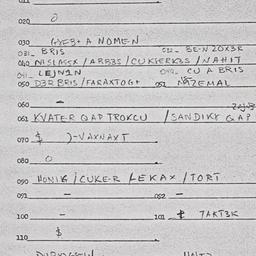 020 0
030 GYEB+A NOMEN
031 BRIS 032 BE-N ZOX3R
040 NISLASEX / ARB3S / CUKIERKAS / NAHIT
041 LEJN1N 042 CU A BRIS
050 D3R BRIS / FARAXTOG+ 051 NAZEMAL
060 -
061 KVATER QAP TROKCU / SANDIKX QAP
070 $ )-VAXNAXT
080 0
090 HONIG / CUKER LEKAX / TORT
091 - 092 -
100 - 101 $ TAKT3K
110 $